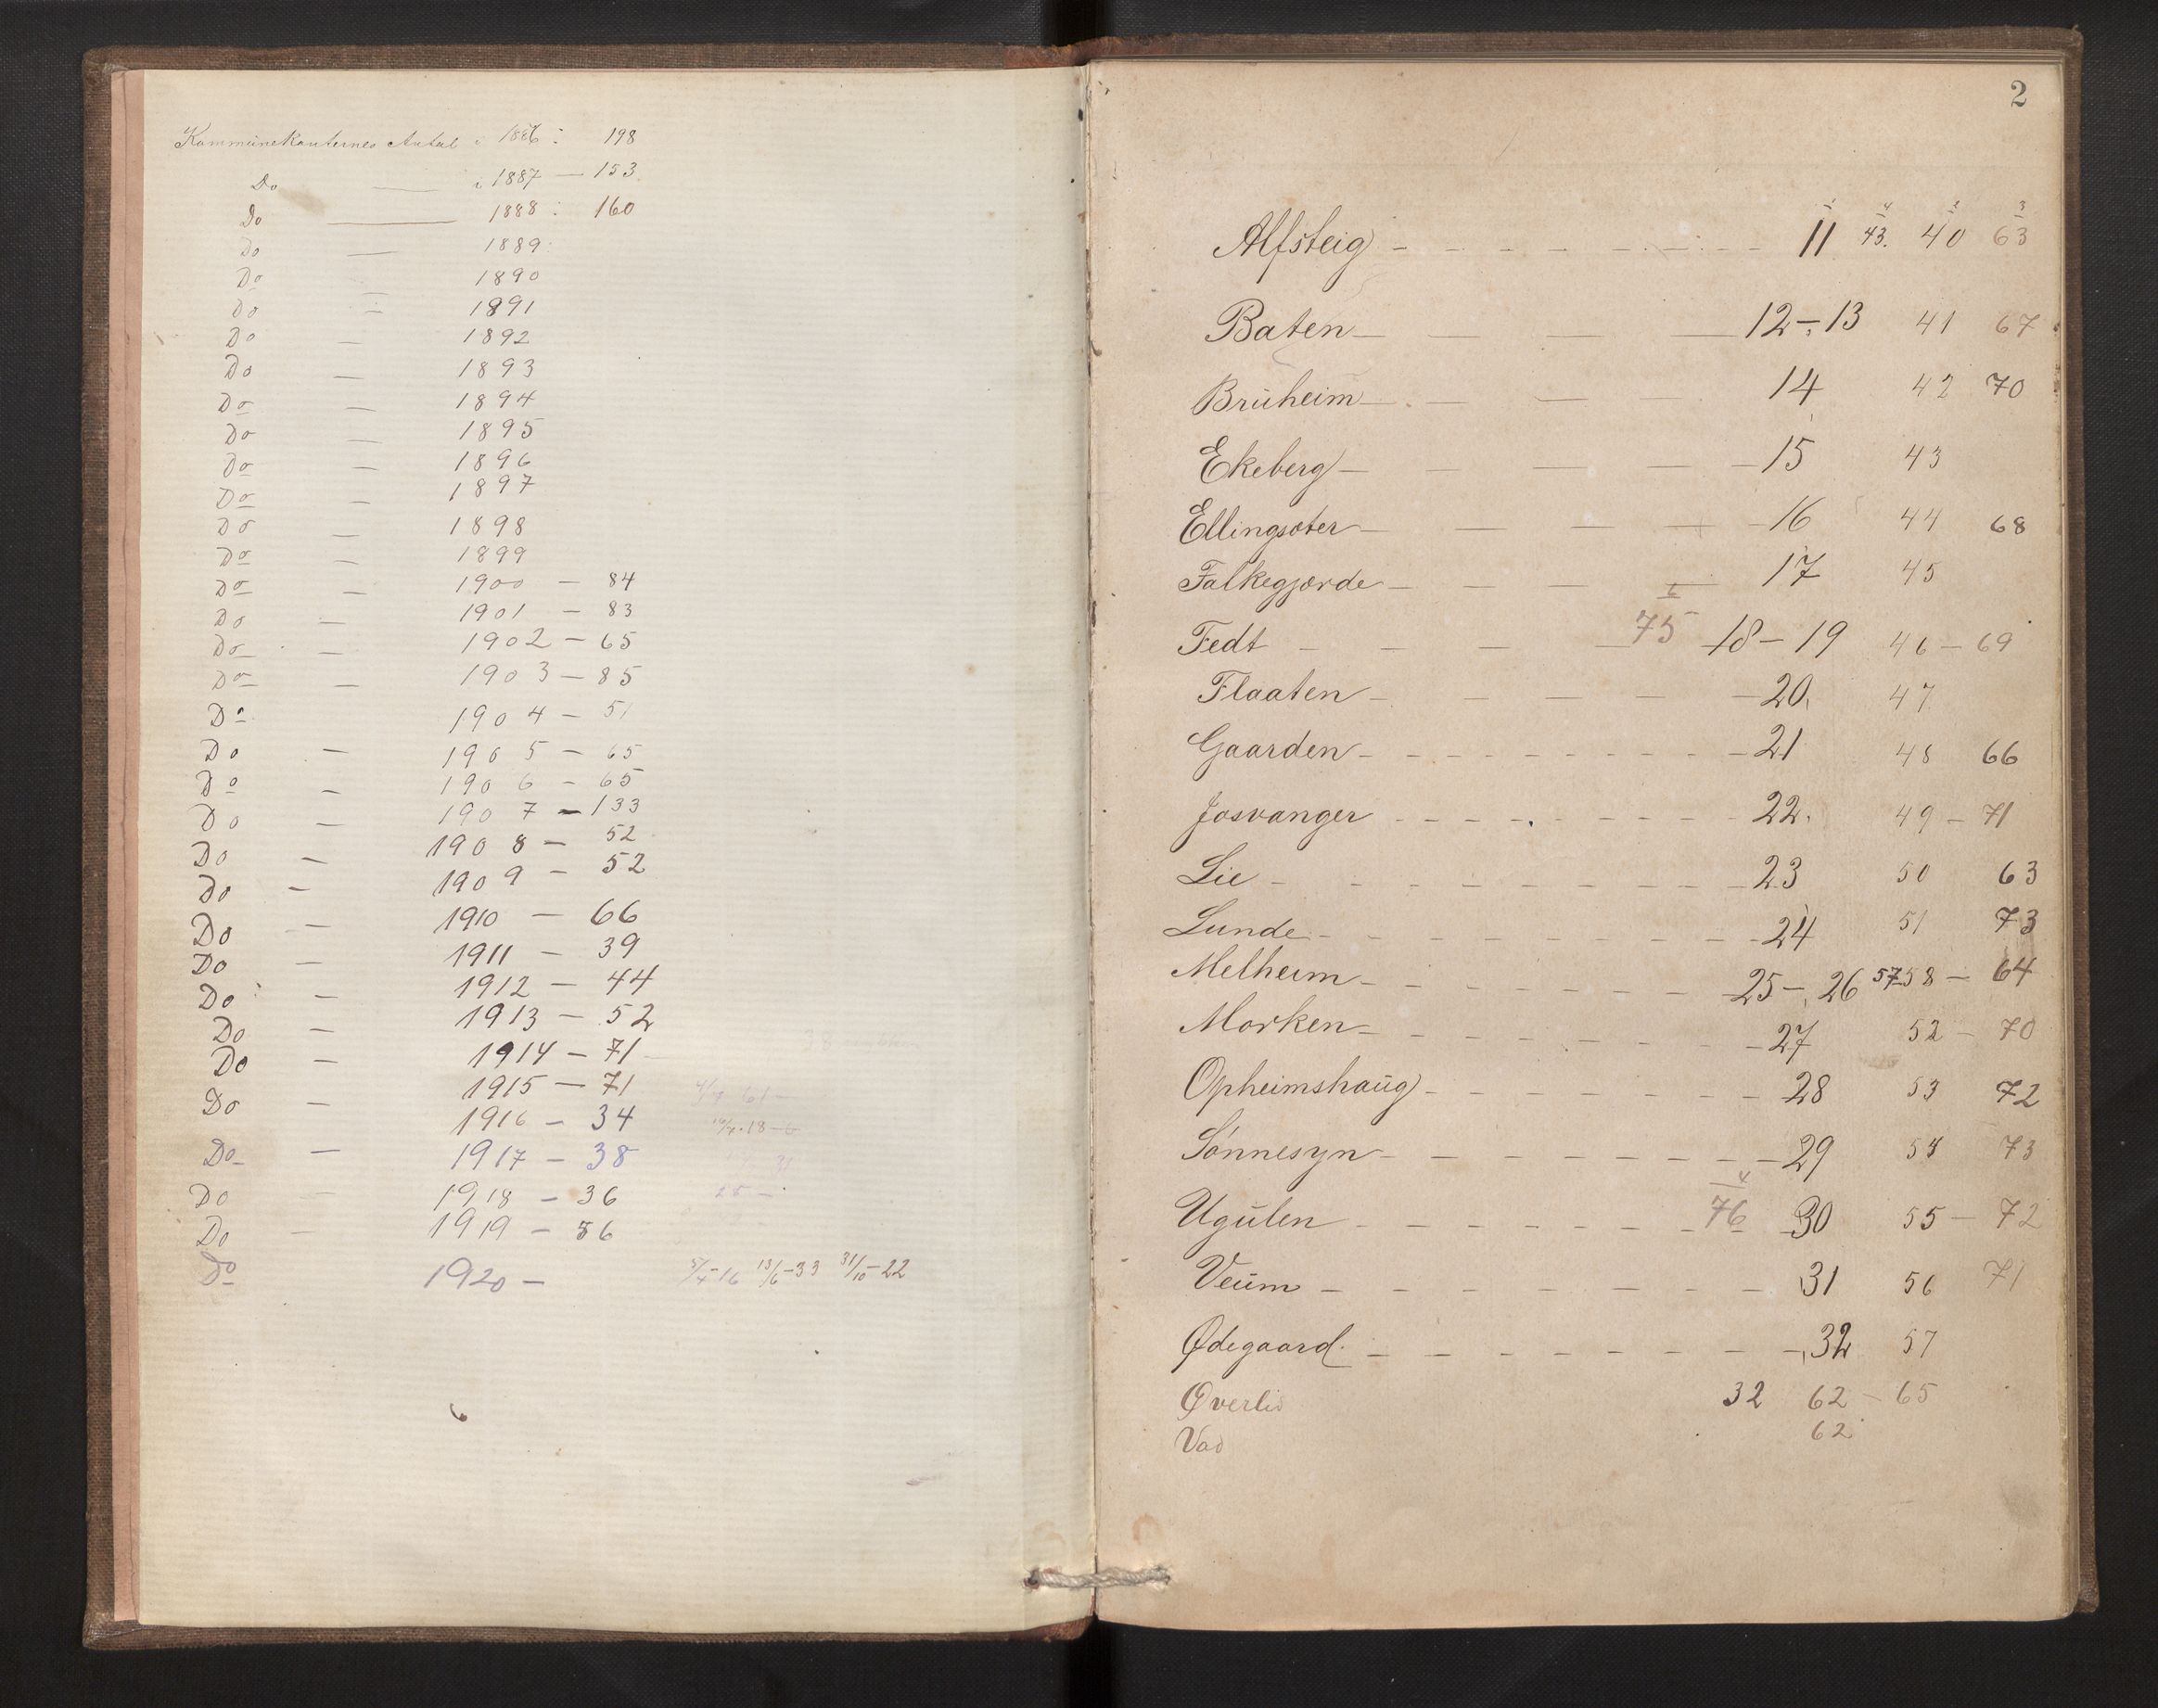 Kommunekanternes Antal i 1886 : 198
Do — i 1887 — 153
Do — 1888 : 160
Do — 1889
Do — 1890
Do — 1891
Do — 1892
Do — 1893
Do — 1894
Do — 1895
Do — 1896
Do — 1897
Do — 1898
Do — 1899
Do — 1900 — 84
Do — 1901 — 83
Do — 1902 — 65
Do — 1903 — 85
Do 1904 — 51
Do — 1905 — 65
Do — 1906 — 65
Do — 1907 — 133
Do — 1908 — 52
Do — 1909 — 52
Do — 1910 — 66
Do — 1911 — 39
Do — 1912 — 44
Do — 1913 — 52
Do — 1914 — 71
Do — 1915 — 71
1916 — 34
Do — 1917 — 38
Do 1918 — 36
Do — 1919 — 56
Do 1920 — 5/4-16 13/6-33 31/10-22
2
1 4 2 3
Alfsteig - - - - 11 43. 40 63
Baten — — — 12-13 41 67
Brüheim — — — 14 42 70
Ekeberg — — — 15 43
Ellingsæter — — — 16 44 68
Falkegjærde — — — 17 45
Fedt - - - 75 18-19 46 - 69
Flaaten - - - 20. 47
Gaarden - - - 21 48 66
Josvanger - - - 22. 49 - 71
Lie - - - 23 50 63
Lunde - - - 24 51 73
Melheim - - - 25-26 57-58 - 64
Morken - - - 27 52 - 70
Opheimshaüg - - - 28 53 72
Sønnesyn - - - 29 54 73
Ugülen - - - 76 30 55 - 72
Veüm - - - 31 56 71
Ødegaard. - - - 32 57
Øverlid 32 62 - 65
Vad 62